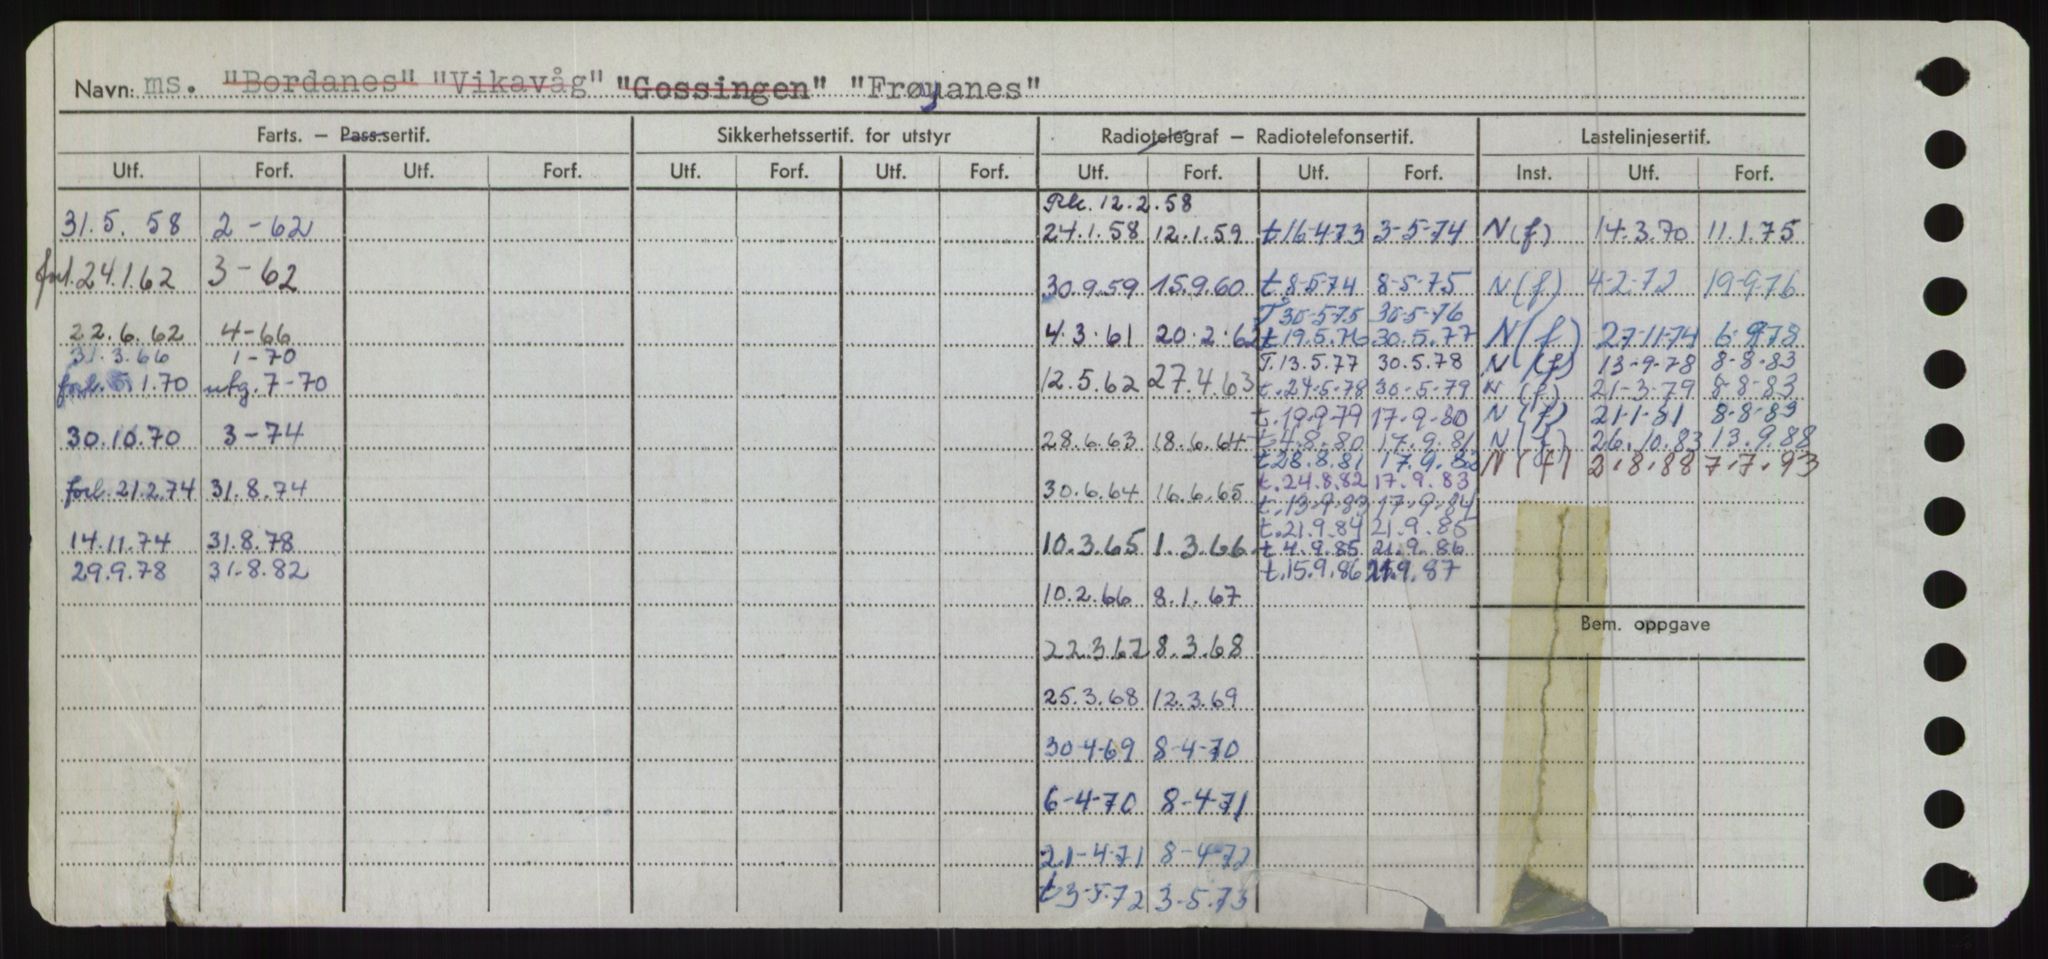 Navn: ms. "Bordanes" "Vikavåg" "Gossingen" "Frøyanes"
Farts. — Pass.sertif. Sikkerhetssertif. for utstyr Radiotelegraf — Radiotelefonsertif. Lastelinjesertif.
Utf. Forf. Utf. Forf. Utf. Forf. Utf. Forf. Utf. Forf. Utf. Forf. Inst. Utf. Forf.
12.2.58
31.5. 58 2-62 24.1.58 12.1.59 t16-4-73 3-5-74 N(f) 14.3.70 11.1.75
forl.24.1.62 3-62 30.9.59 15.9.60 t.8-5-74 8-5-75 N(f) 4-2-72 19-9-76
T 30-5-75 30-5-76
22.6.62 4-66 4.3.61 20.2.62 t.19.5.76 30.5.77 N(f) 27-11-74 6-9-78
31.3.66 1-70 T.13.5.77 30.5.78 N(f) 13-9-78 8-8-83
forl. 1.70 utg.7-70 12.5.62 27.4.63 t.24-5-78 30-5-79 N(f) 21-3-79 8-8-83
t.19-9-79 17-9-80 N(f) 21-1-81 8-8-83
30.10.70 3-74 28.6.63 18.6.64 t.4.8.80 17.9.81 N(f) 26.10.83 13.9.88
t.28.8.81 17.9.82 N(f) 2.8.88 7.7.93
forl.21.2.74 31.8.74 30.6.64 16.6.65 t.24.8.82 17.9.83
t.13-9-83 17-9-84
t.21.9.84 21.9.85
14.11.74 31.8.78 10.3.65 1.3.66 t.4.9.85 21.9.86
29.9.78 31.8.82 t.15.9.86 21.9.87
10.2.66 8.1.67
Bem. oppgave
22.3.67 8.3.68
25.3.68 12.3.69
30-4-69 8-4-70
6-4-70 8-4-71
21-4-71 8-4-72
t3-5.72 3-5.73